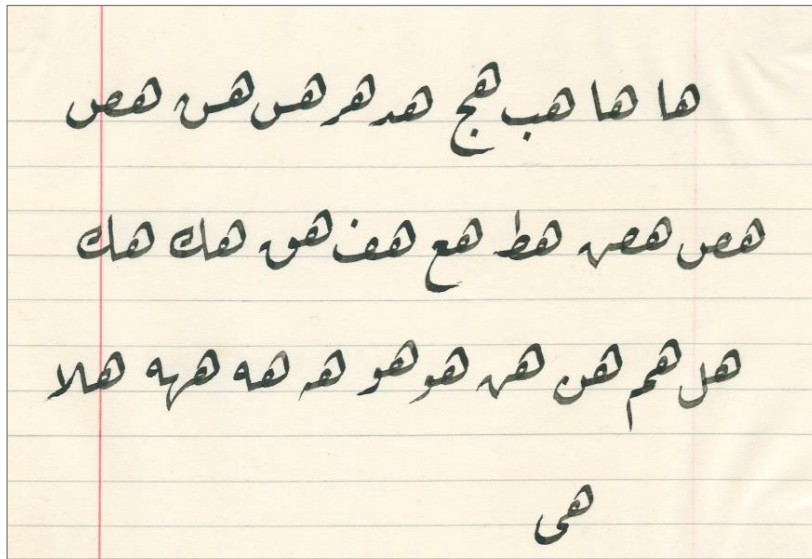 ها ها هب هج هد هر هس هس هص
هص هص هط هع هف هق هك هك
هل هم هن هن هو هو هه هه ههه هلا
هى